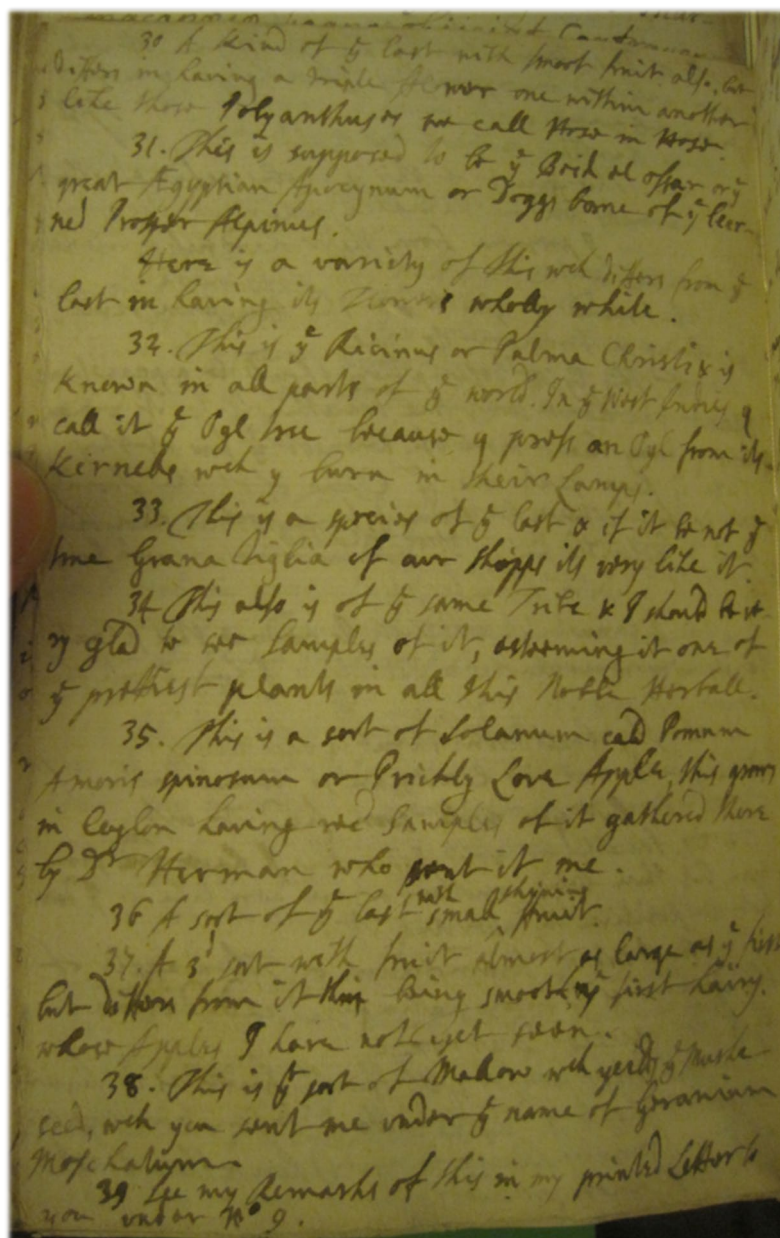 30 A kind of yͤ last with smoot fruit also, but
differs in having a triple flower one within another
like those Polyanthuses we call Hose in Hose.
31. This is supposed to be yͤ Beid el ossar or yͤ
great Ægyptian Apocynum or Doggs bane of yͤ lear-
ned Prosper Alpinus.
Here is a variety of this wch differs from yͤ
last in having its flowers wholly white.
32. This is yͤ Ricinus or Palma Christi & is
known in all parts of yͤ world. In yͤ West Indies y
call it yͤ Oyl tree because y press an Oyl from its
Kirnels wch y burn in their Lamps.
33. This is a species of yͤ last & if it be not yͤ
true Grana Tiglia of our shopps its very like it.
34 This also is of yͤ same Tribe & I should be ve
ry glad to see Samples of it, esteeming it one of
yͤ prettiest plants in all this Noble Herball.
35. This is a sort of Solanum cald Pomum
Amoris spinosum or Prickly Love Apple, this grows
in Ceylon having recd Samples of it gathered there
by Dr Herman who sent it me.
36 A sort of yͤ last with small shyning fruit.
37. A 3d sort with fruit almost as large as yͤ first
but differs from it this being smooth, yͤ first hairy.
whose Apples I have not yet seen.
38. This is yͤ sort of Mallow wch yeilds yͤ Muske
seed, wch you sent me under yͤ name of Geranium
Moschatum.
39 See my Remarks of this in my printed Letter to
you under No 9.